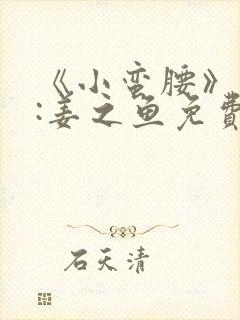 《小蛮腰》
:姜之鱼免費
石天清